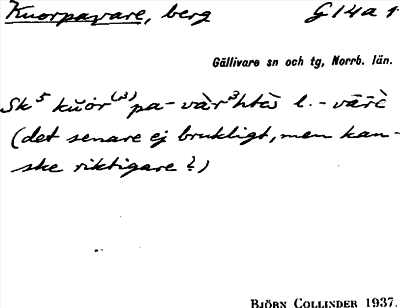 Kuorpavare, berg G 14 a 1.
Gällivare sn och tg, Norrb. län.
Sk⁵ kŭor⁽³⁾ pa-vàr³htès l. -vārè
(det senare ej brukligt, men kan-
ske riktigare ?)
BJÖRN COLLINDER 1937.